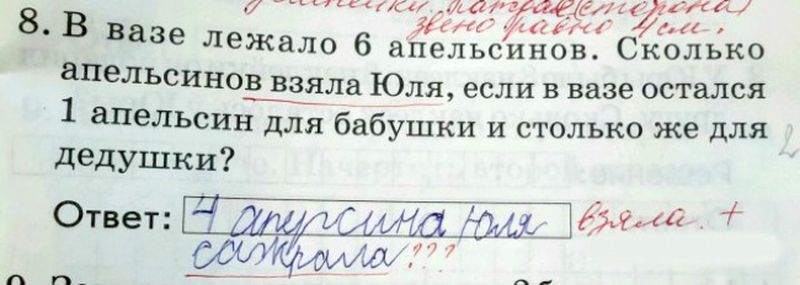 ломанейки. (сторона)
звено равно 4 см.
8. В вазе лежало 6 апельсинов. Сколько
апельсинов взяла Юля, если в вазе остался
1 апельсин для бабушки и столько же для
дедушки?
2
Ответ: 4 апурсина Юля взяла. +
сажрала???